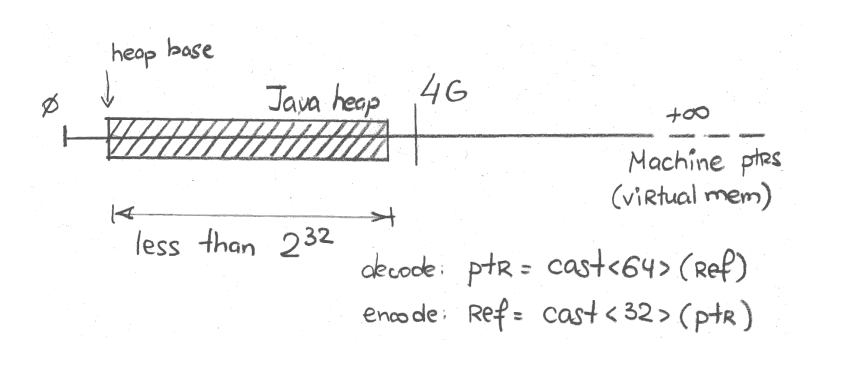 heap base
Java heap
4G
∅
+∞
Machine ptrs
(virtual mem)
less than 2^32
decode: ptr = cast<64>(Ref)
encode: Ref = cast<32>(ptr)